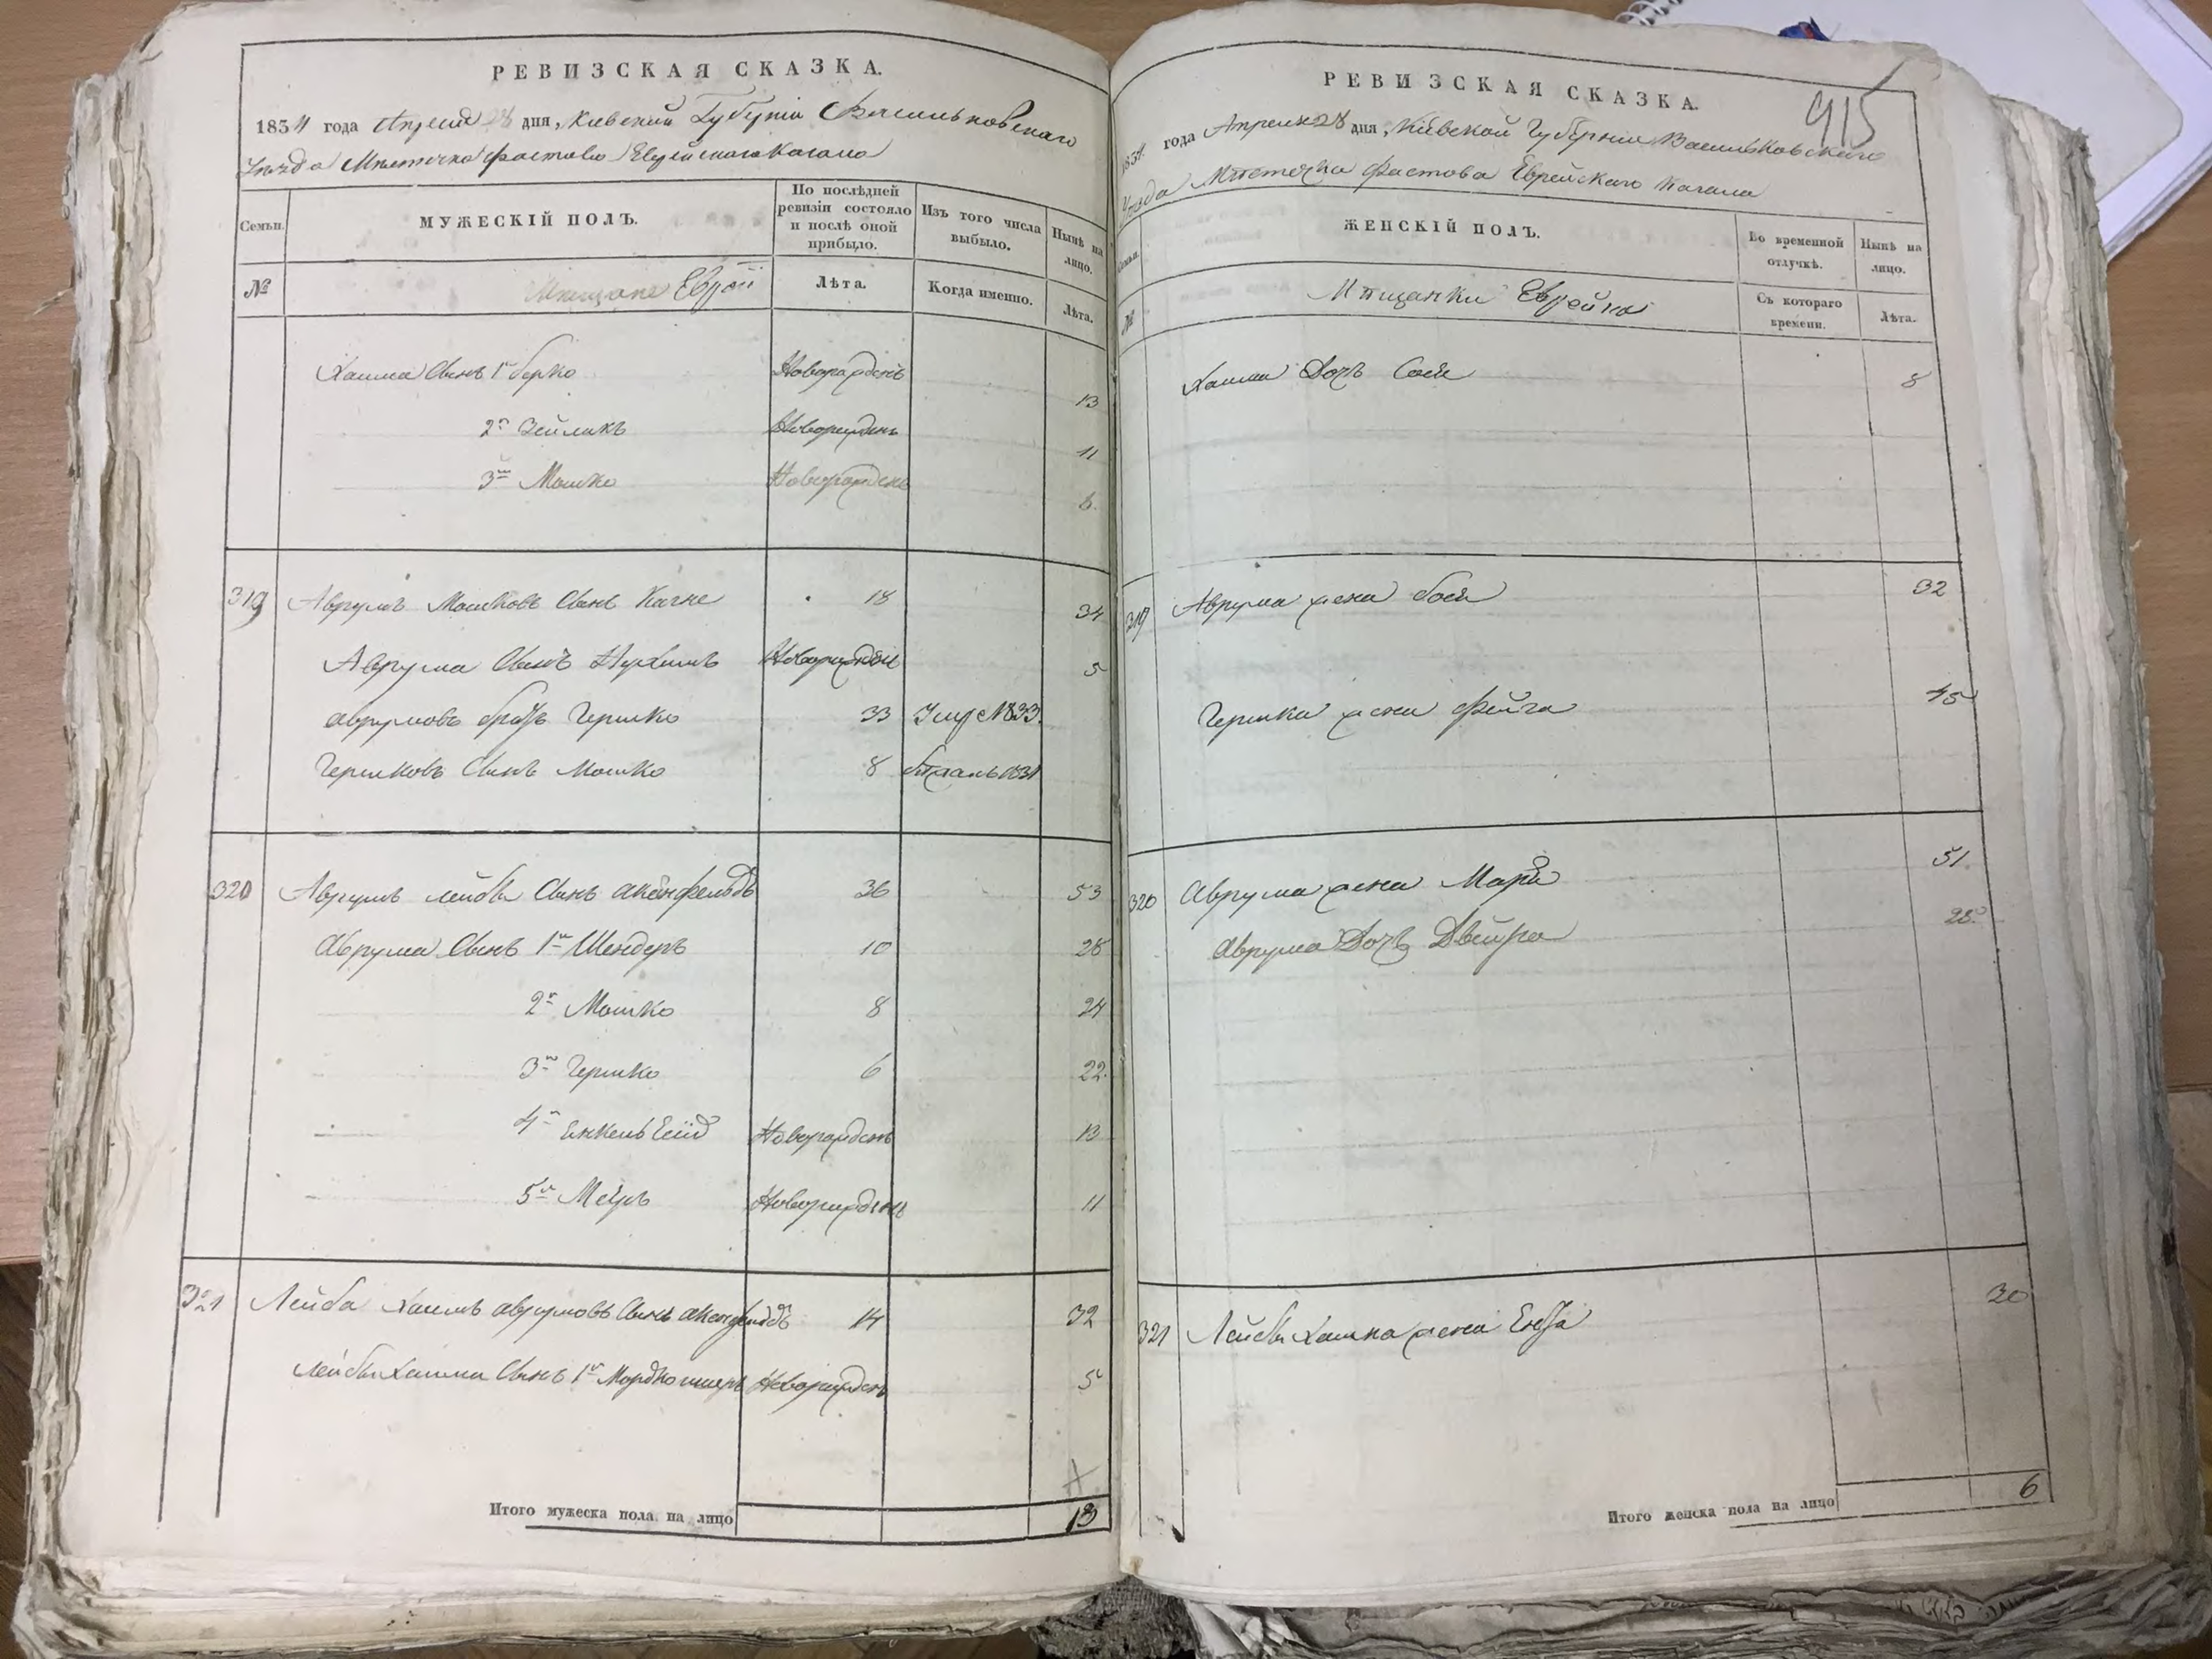 РЕВИЗСКАЯ СКАЗКА.
1834 года Апреля 28 дня, Киевской Губерніи Васильковскаго
Уезда Мѣстечка Фастова Еврейскаго Кагала
Семьи.
МУЖЕСКІЙ ПОЛЪ.
По послѣдней ревизіи состояло и послѣ оной прибыло.
Изъ того числа выбыло.
Нынѣ на лицо.
№
Мѣщане Евреи
Лѣта.
Когда именно.
Лѣта.
Хаима Сынъ 1й Берко Новорожденъ 13
2й Зейликъ Новорожденъ 11
3й Мошко Новорожденъ 8.
319 Аврумъ Мошковъ Сынъ 18 34
Аврума Сынъ Нухимъ Новорожденъ 5
Аврумовъ братъ Гершко 33 Умре 1833.
Гершковъ Сынъ Мошко 8
320 Аврумъ Лейбы Сынъ Аксенфельдъ 36 53
Аврума Сынъ 1й Шендеръ 10 26
2й Мошко 8 24
3й Гершко 6 22.
4й Енкель Новорожденъ 13
5й Меер Новорожденъ 11
321 Лейба Хаимъ Аврумовъ Сынъ Аксенфельдъ 14 32
Лейбы Хаима Сынъ 1й Мордко Новорожденъ 5
Итого мужеска пола на лицо 13
РЕВИЗСКАЯ СКАЗКА.
915
1834 года Апреля 28 дня, Кіевской Губерніи Васильковскаго
Уезда Мѣстечка Фастова Еврейскаго Кагала
Семьи.
ЖЕНСКІЙ ПОЛЪ.
Во временной отлучкѣ.
Нынѣ на лицо.
№
Мѣщанки Еврейки
Съ котораго времени.
Лѣта.
Хаима Дочь Сося 8
319 Аврума жена Бося 32
Гершка жена Фейга 45
320 Аврума жена Маря 51.
Аврума Дочь Двейра 25.
321 Лейбы Хаима жена Ента 30
Итого женска пола на лицо 6